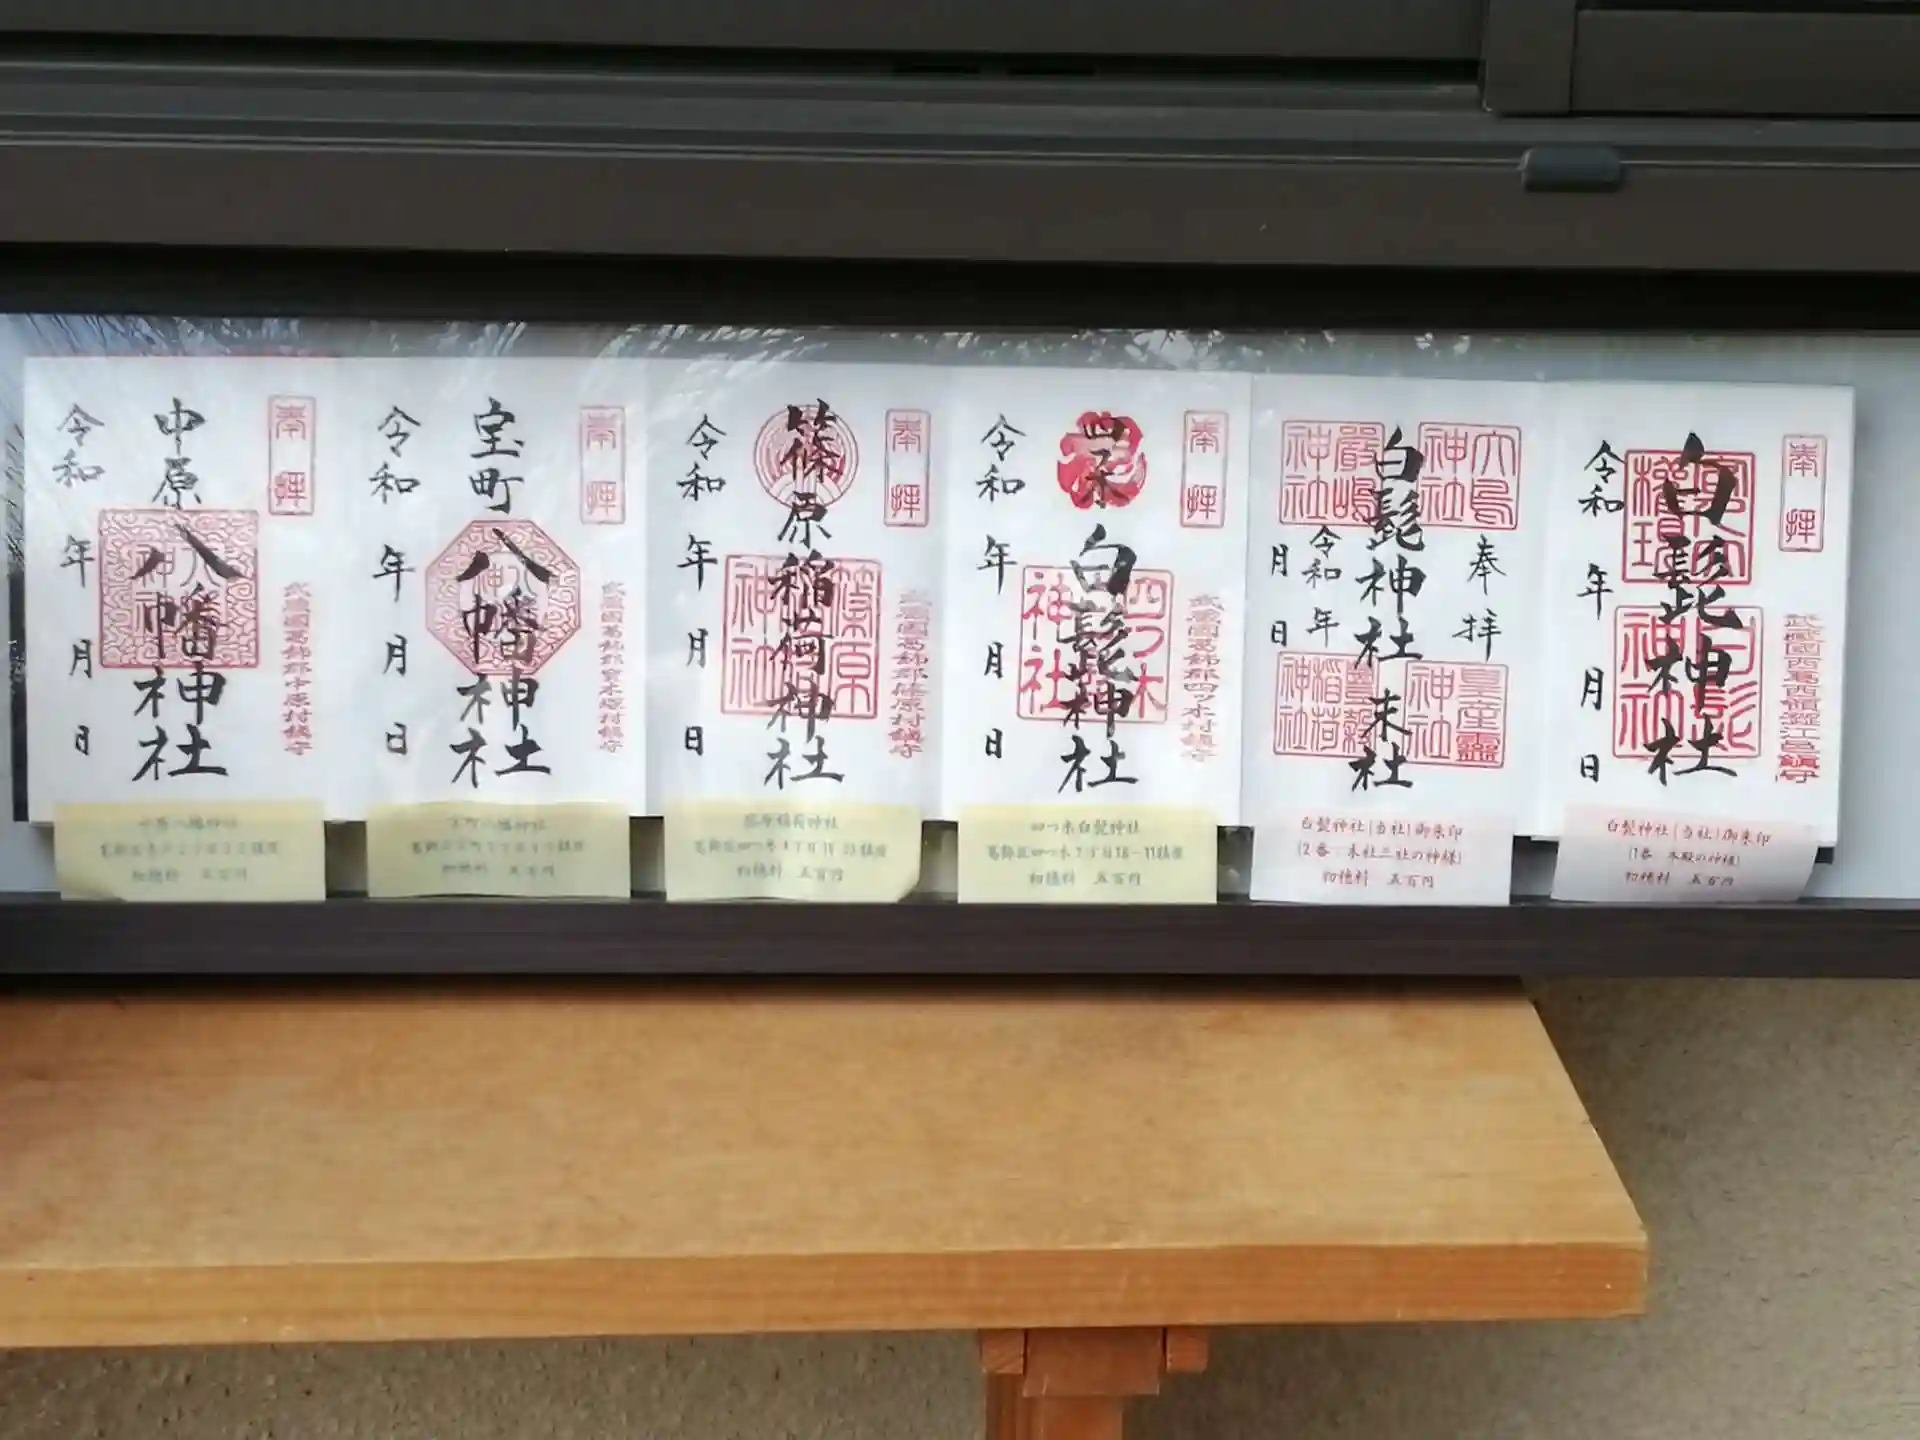 奉拝
白髭神社
武蔵國西葛西領澁江邑鎮守
白髭
神社
令和 年 月 日
白髭神社(当社)御朱印
(1番:本殿の神様)
初穂料 五百円
大鳥
神社
嚴嶋
神社
奉拝
白髭神社 末社
令和 年
月 日
皇産靈
神社
豊穀
稲荷
神社
白髭神社(当社)御朱印
(2番:末社三社の神様)
初穂料 五百円
奉拝
四ツ木
白髭神社
武蔵國葛飾郡四ツ木村鎮守
四つ木
神社
令和 年 月 日
四つ木白髭神社
初穂料 五百円
奉拝
篠原稲荷神社
武蔵國葛飾郡篠原村鎮守
篠原
神社
令和 年 月 日
篠原稲荷神社
初穂料 五百円
奉拝
宝町八幡神社
武蔵國葛飾郡宝木塚村鎮守
八幡
神社
令和 年 月 日
宝町八幡神社
初穂料 五百円
奉拝
中原八幡神社
武蔵國葛飾郡中原村鎮守
八幡
神社
令和 年 月 日
中原八幡神社
初穂料 五百円